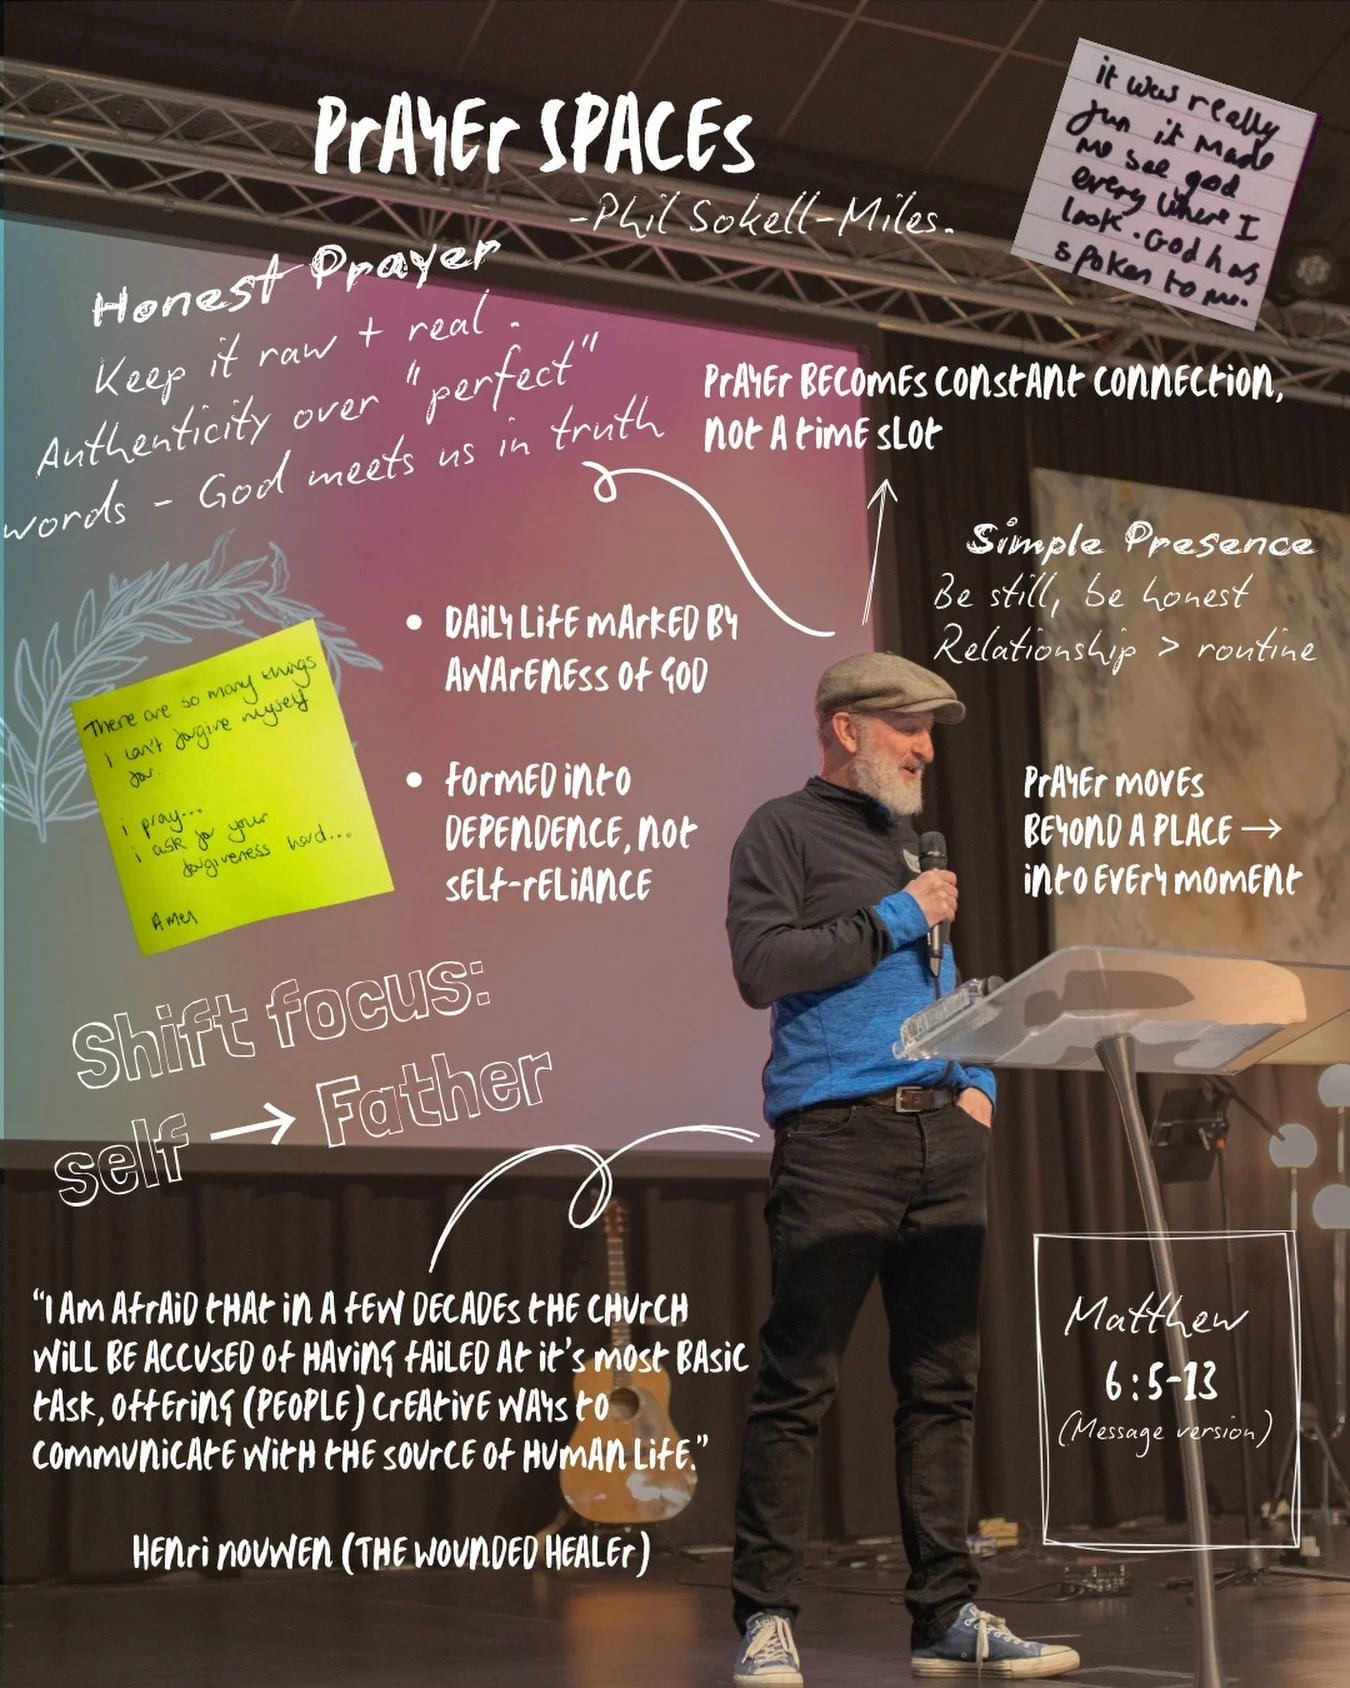 PrAYEr SPACEs
-Phil Sokell-Miles.
it was really
fun it made
me see god
every where I
look. God has
spoken to me.
Honest Prayer
Keep it raw + real.
Authenticity over "perfect"
words - God meets us in truth
PrAYEr BECOMEs CONstANt CONNECtiON,
NOt A tiME sLOt
Simple Presence
Be still, be honest
Relationship > routine
• DAiLY LifE MArkED BY
AWArENEss Of GOD
• fOrMED iNtO
DEPENDENCE, NOt
sELf-rELiANCE
PrAYEr MOVEs
BEYOND A PLACE →
iNtO EVErY MOMENt
There are so many things
I can't forgive myself
for.
i pray...
i ask for your
forgiveness hard...
Shift focus:
self → Father
“I AM AfrAiD tHAt iN A fEW DECADEs tHE CHUrCH
WiLL BE ACCUsED Of HAViNG fAiLED At it’s MOst BAsiC
tAsk, OffEriNG (PEOPLE) CrEAtiVE WAYs tO
COMMUNiCAtE WitH tHE sOUrCE Of HUMAN LifE.”
HENri NOUWEN (THE WOUNDED HEALEr)
Matthew
6:5-13
(Message version)